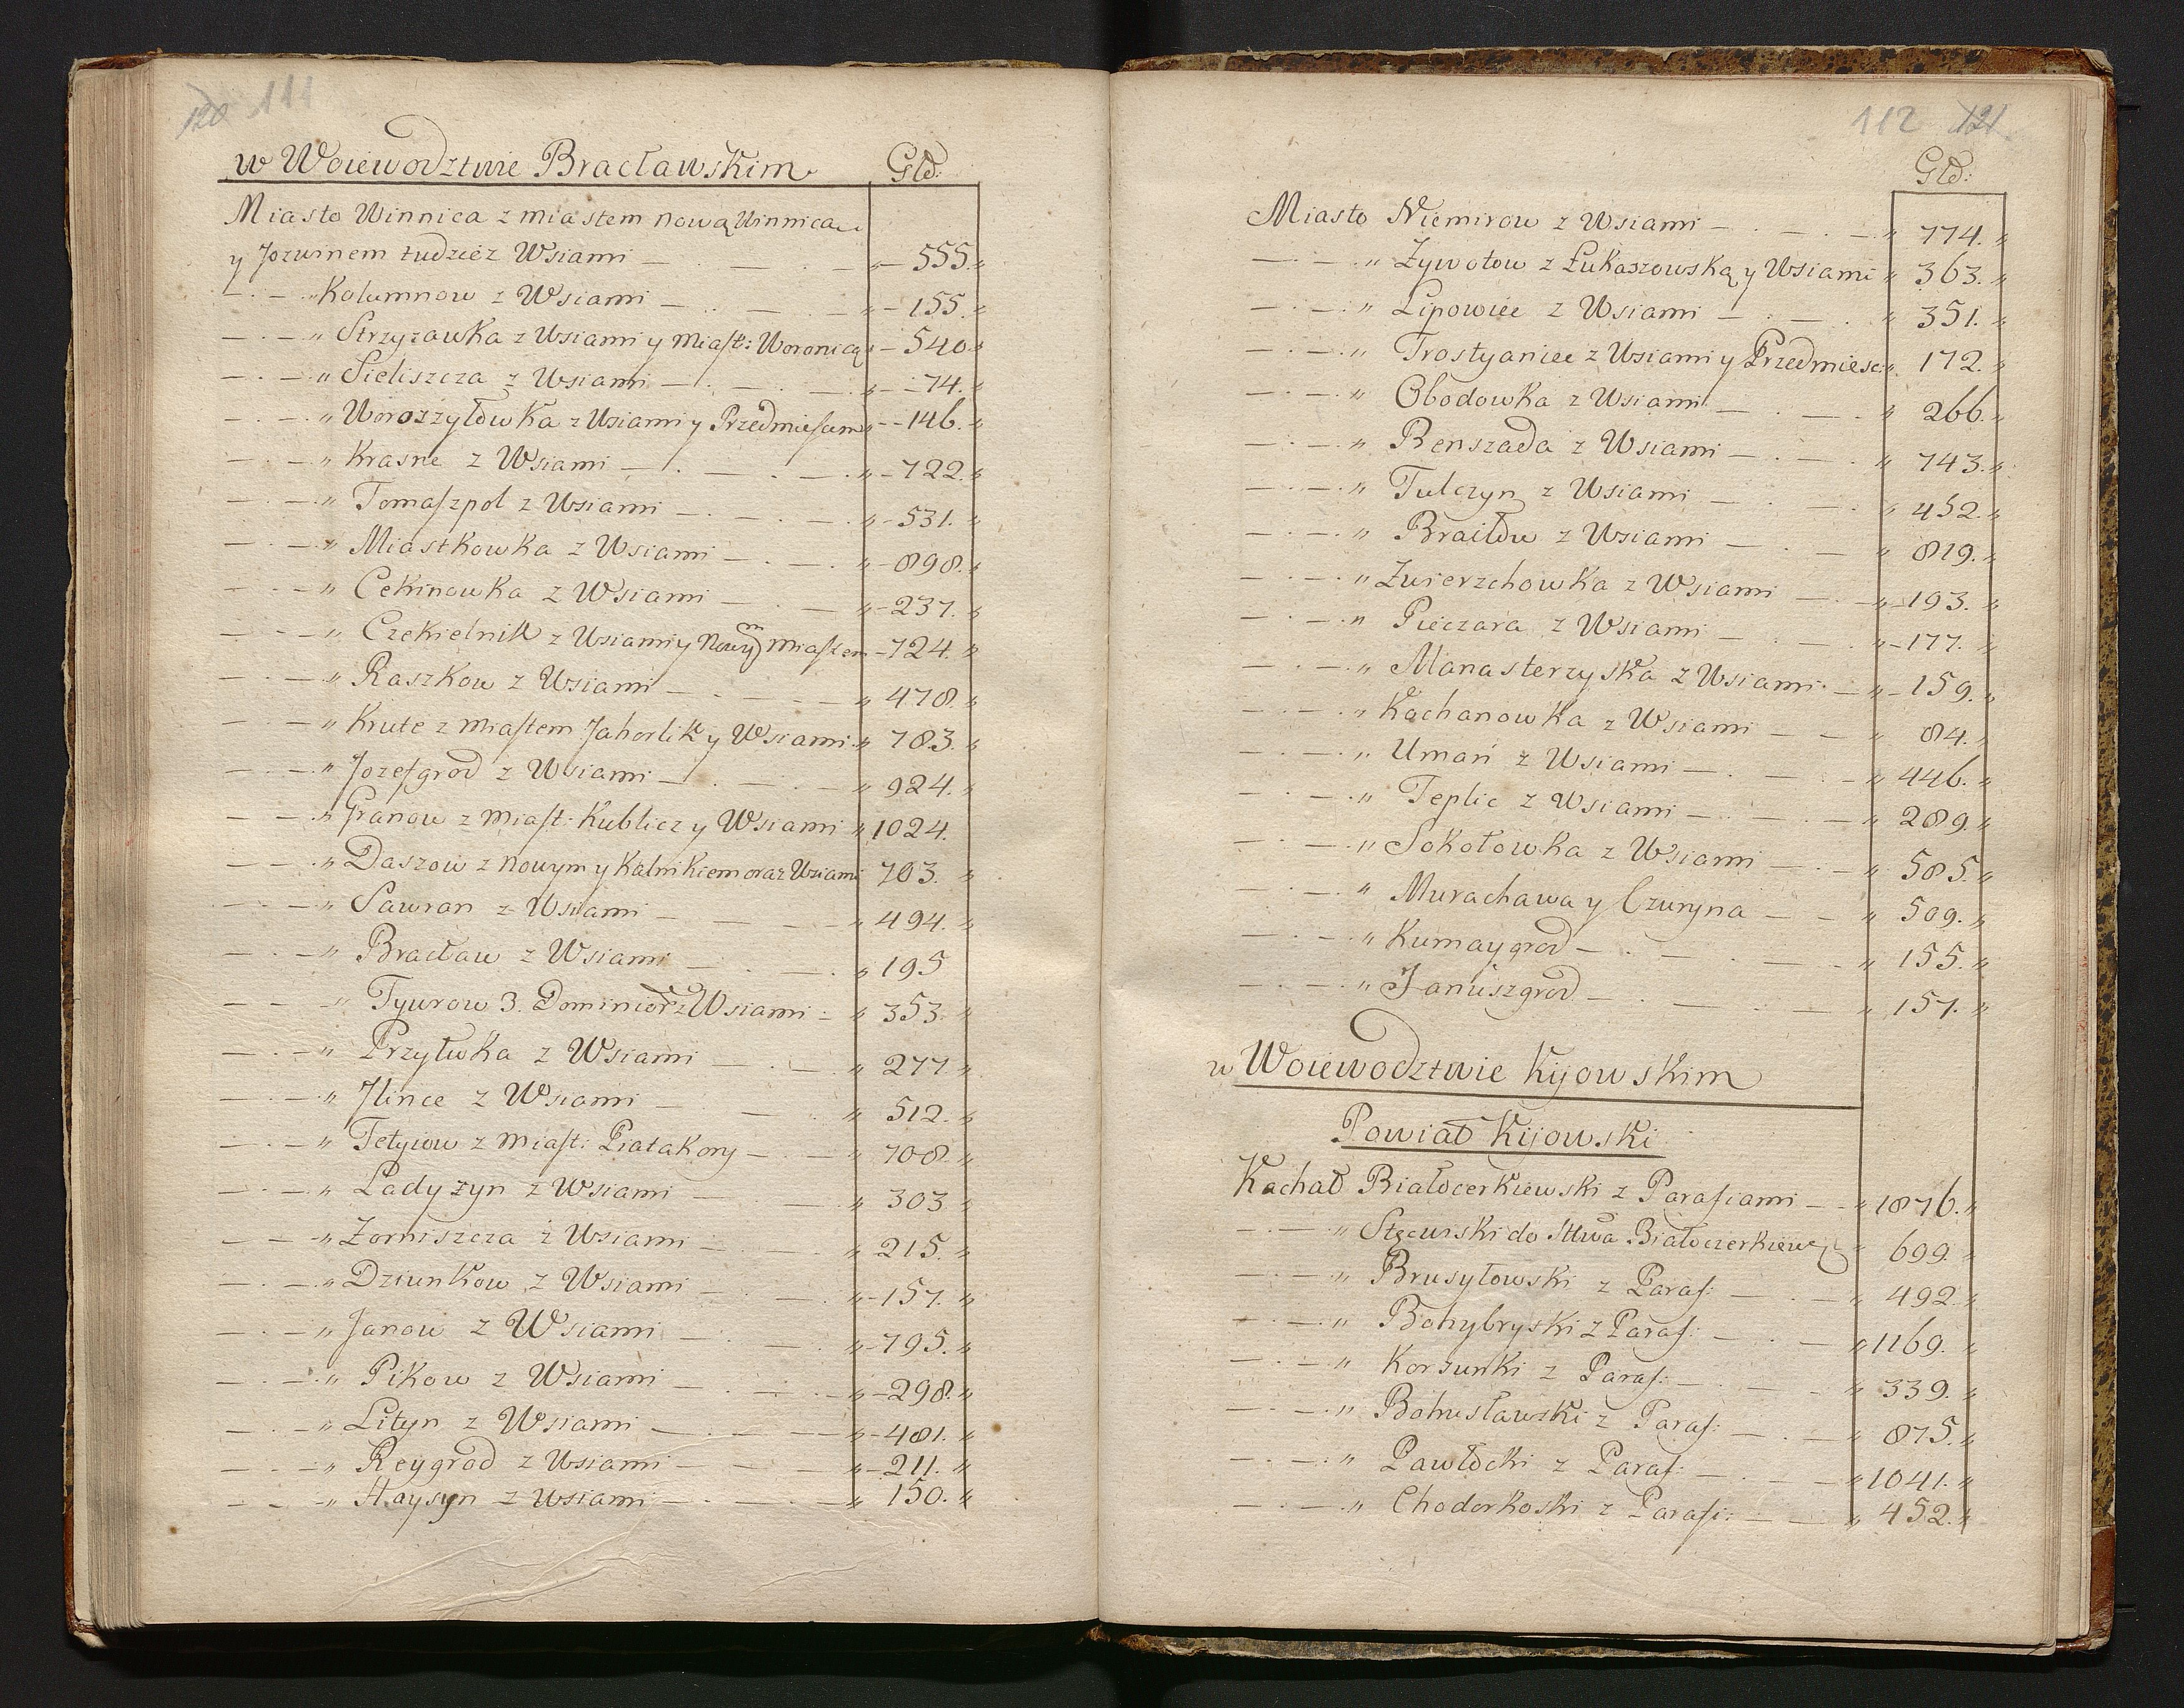 120 111
w Woiewodztwie Bracławskim Głd:
Miasto Winnica z miastem nową Winnicą
y Jozwinem tudziez Wsiami — 555.
— " Kolumnow z Wsiami — 155.
— " Strzyzawka z Wsiami y Miast: Woronicą — 540.
— " Sieliszcza z Wsiami — 74.
— " Woroszyłowka z Wsiami y Przedmiesciem — 146.
— " Krasne z Wsiami — 722.
— " Tomaszpol z Wsiami — 531.
— " Miastkowka z Wsiami — 898.
— " Cekinowka z Wsiami — 237.
— " Czekielnik z Wsiami y Nowym Miastem — 724.
— " Raszkow z Wsiami — 478.
— " Krute z Miastem Jahorlik y Wsiami " 783.
— " Jozefgrod z Wsiami — 924.
— " Granow z Miast: Kublicz y Wsiami " 1024.
— " Daszow z nowym y Kalnikiem oraz Wsiami 703.
— " Sawran z Wsiami — 494.
— " Bracław z Wsiami — 195
— " Tywrow 3. Dominior z Wsiami — 353.
— " Przyłuka z Wsiami — 277
— " Ilince z Wsiami — 512.
— " Tetyiow z Miast: Piatakory — 708.
— " Ladyzyn z Wsiami — 303
— " Zorniszcza z Wsiami — 215.
— " Dziunkow z Wsiami — 157.
— " Janow z Wsiami — 795.
— " Pikow z Wsiami — 298.
— " Lityn z Wsiami — 481.
— " Reygrod z Wsiami — 211.
— " Haysyn z Wsiami — 150.
112 121
Głd:
Miasto Niemirow z Wsiami — 774.
— " Zywotow z Łukaszowską y Wsiami " 363.
— " Lipowiec z Wsiami — 351.
— " Trostyaniec z Wsiami y Przedmiesc: 172.
— " Obodowka z Wsiami — 266.
— " Benszada z Wsiami — 743.
— " Tulczyn z Wsiami — 452.
— " Braiłow z Wsiami — 819.
— " Zwierzchowka z Wsiami — 193.
— " Pieczara z Wsiami — 177.
— " Manasterzyska z Wsiami — 159.
— " Kachanowka z Wsiami — 84.
— " Umań z Wsiami — 446.
— " Teplic z Wsiami — 289.
— " Sokołowka z Wsiami — 585.
— " Murachawa y Czuryna — 509.
— " Kumaygrod — 155.
— " Januszgrod — 157.
w Woiewodztwie Kijowskim
Powiat Kijowski
Kachał Białocerkiewski z Parafiami — 1876.
— " do Sttwa Białoczerkiew: 699.
— " Brusyłowski z Paraf: — 492.
— " z Paraf: — 1169.
— " Korsunki z Paraf: — 339.
— " Bohusławski z Paraf: — 875.
— " Pawłocki z Paraf: — 1041.
— " Chodorkoski z Parafi: — 452.